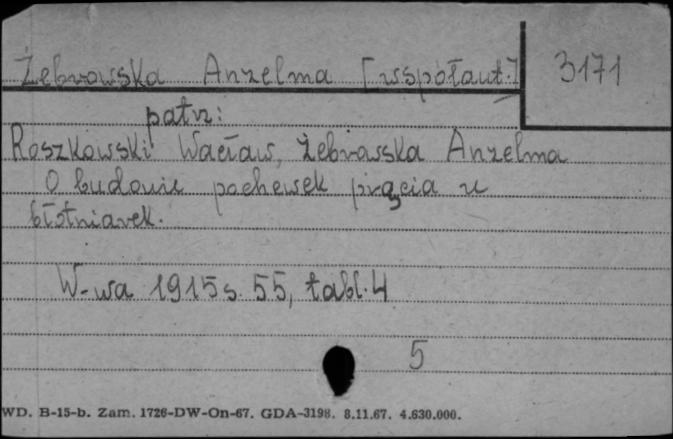 Żebrowska Anzelma [współaut.]
3171
patrz:
Roszkowski Wacław, Żebrowska Anzelma
O budowie pochewek prącia u
błotniarek.
W-wa 1915 s. 55, tabl. 4
5
WD. B-15-b. Zam. 1726-DW-On-67. GDA-3198. 8.11.67. 4.630.000.